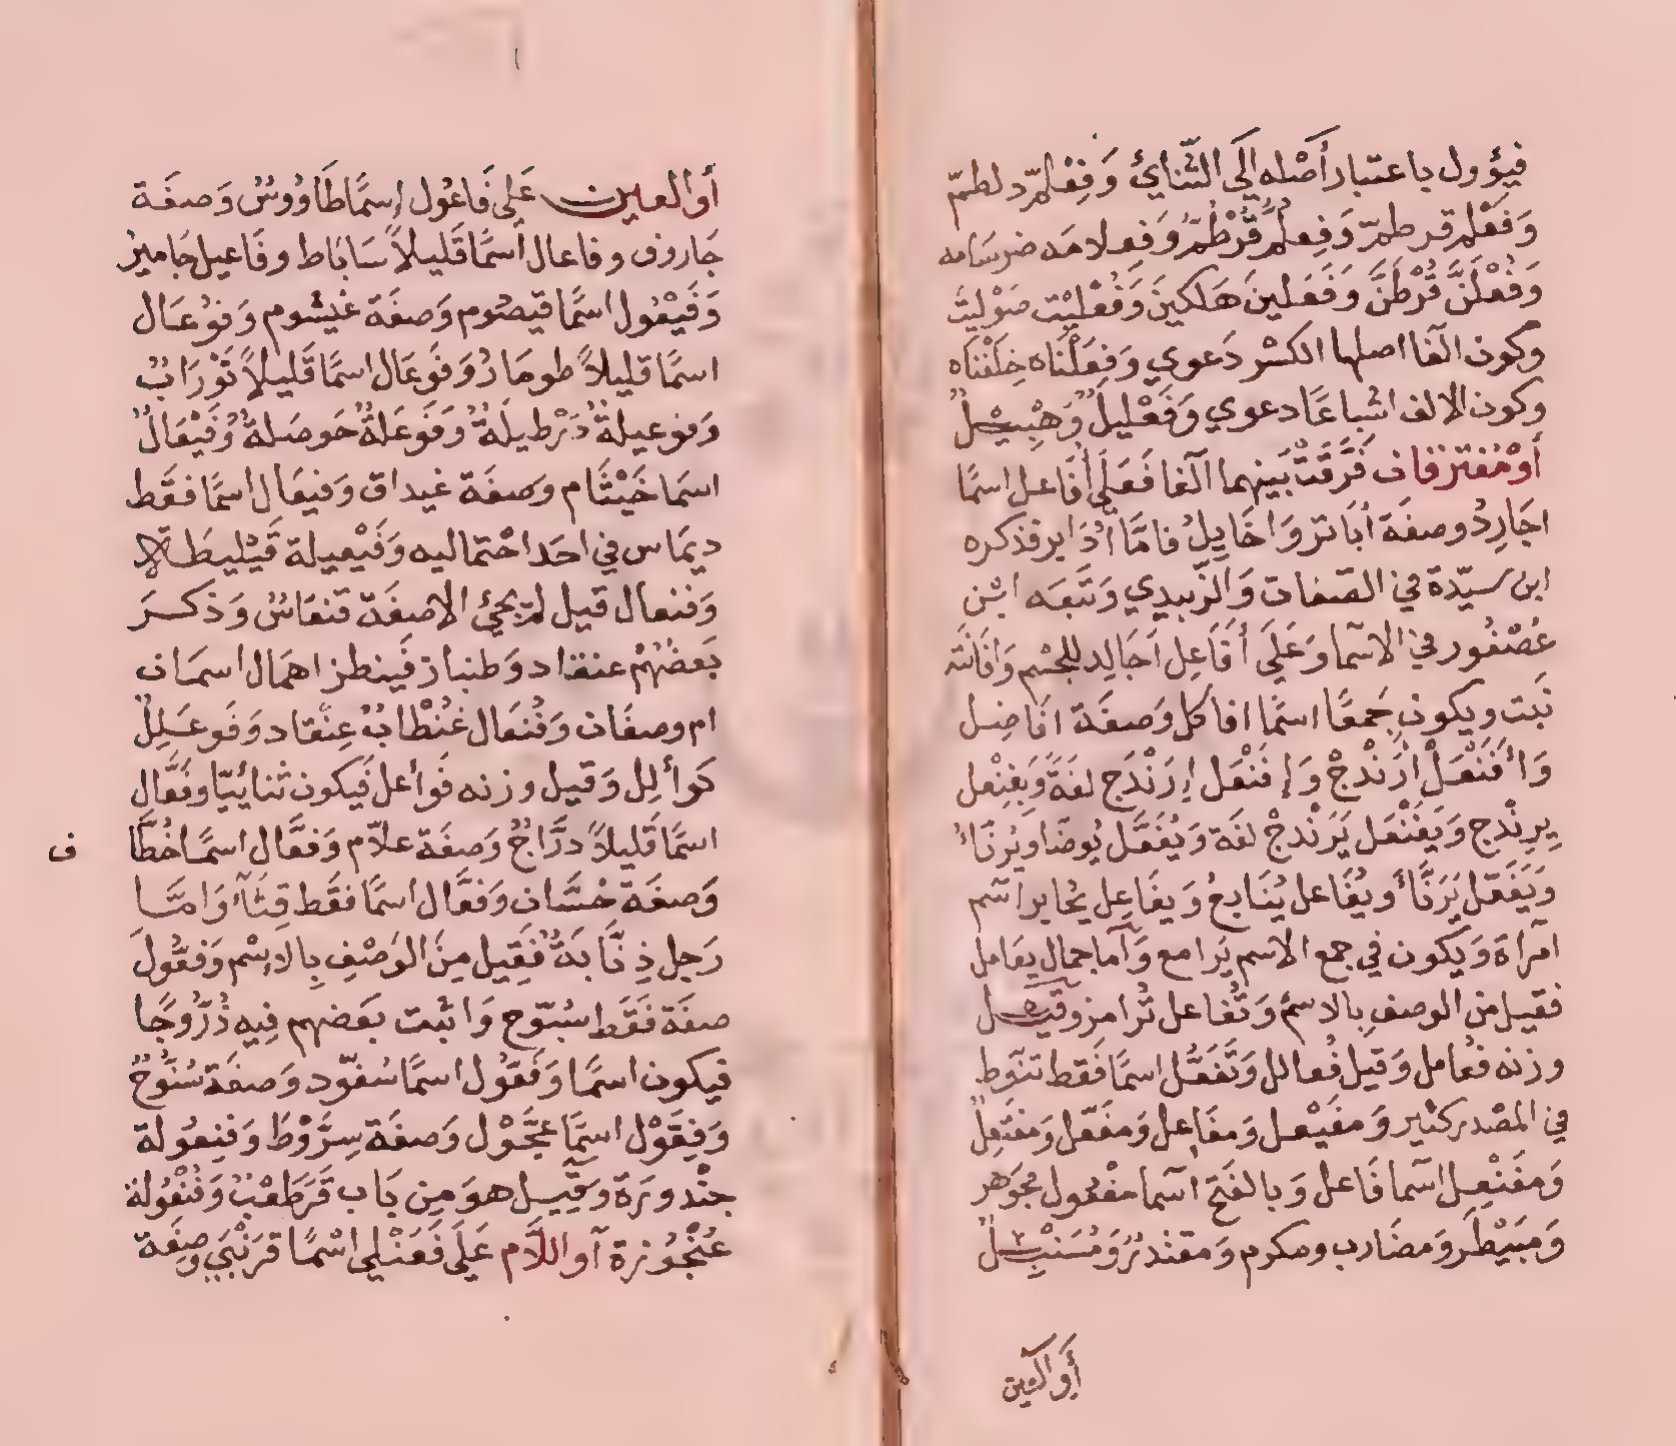 فيؤول باعتبار أصله إلى الثنائي وَفِعْلِمّ دلطمّ
وَفَعْلَمّ قرطمّ وَفِعلُمّ قُرْطُمّ وَفِعلامه ضرسامه
وَفُعْلَنَّ قُرْطَنَّ وَفَعَلينَ هَلَكينَ وَفُعْليْت صَوْليت
وكون الفا اصلها الكسر دَعوي وَفِعَلْنَاه خِلَفْنَاه
وكون الالف اشباعًا دعوي وَفَعْلِيلٌ وَهْبِيلٌ
أوْ مُفترقان فَرَّقَتْ بَينهما الفا فَعَلَى أُفَاعل اسمًا
اجَارِدُ وصفَة أُبَاتر وَاخَايِلُ فامَّا أُدَابر فذكره
ابن سيّدة في الصفات وَالزّبيدي وَتَبعَه ابْن
عُصْفُور في الاسما وَعَلَى أَفَاعِل اَجَالِد للجسْم وَافَانَيه
نَبت ويكون جَمعًا اسمًا افاكل وَصفَة افَاضِل
وَأَفَنْعَلْ أرَنْدَجْ وَإفَنْعَل إرَنْدَج لغَةً وَيَفِنْعل
يِرِنْدج وَيَفَنْعَل يَرَنْدجْ لغة وَيُفَعَّل يُوضَا ويُرنَاءُ
وَيَفَعّل يَرَنَّأ ويُفَاعل يُنَابعُ وَيفَاعِل يحُابر اسم
امرأة وَيَكون في جمع الاسم يَرامع وَاما جمال يعَامل
فقيل من الوصف بالاسم وَتُفاعل تُرامز وقيل
وزنه فعُامل وَقيل فُعالل وَتَفَعُّل اسمًا فَقط تنوّط
في المصْدر كثير وَمفَيْعل وَمفَاعِل وَمفَعّل وَمفتَعِلٌ
وَمفَنْعِل اسما فَاعل وَبالفَتح اسما مفعول مجَوهر
وَمبَيْطَر وَمضَارب ومكرم وَمقتدرٌ وَمُسَنْبِلٌ
أو العين
أو العين عَلى فَاعُول إسمًا طَاوُوسٌ وَصفَة
جَاروف وفاعال اسمًا قَليلاً سَابَاط وفَاعيل جَاميز
وَفَيْعُول اسمًا قيصُوم وَصفَة غيشوم وَفوْعَال
اسمًا قليلاً طومَارٌ وَفَوعَال اسمًا قَليلاً تَوْرَابٌ
وَفوعيلةٌ دَرْطيلَةٌ وَفَوعَلةٌ حَوصَلةٌ وَفَيْعَالٌ
اسمَا خَيْثَام وصفَة غيداق وَفيعَال اسمًا فقَط
ديمَاس في احَد احْتماليه وَفَيْعيلة قَيْليطَة
وَفنعال قيل لم يجئ الاصفَة قنعَاسٌ وَذكرَ
بَعضُهُمْ عنقاد وَطنبار فَينطر اهمَال اسمَان
ام وصفَان وَفُنعَال عُنْظابٌ عِنْقاد وَفَوعَلِلٌ
كَوألِل وَقيل وزنه فَوأعل فَيكون ثنائيّا وفَعَّال
اسمًا قَليلاً دَرَّاجٌ وَصفَة علاّم وَفعَّال اسمًا خُطَّا
ف
وَصفَة حُسَّان وَفعَّال اسمًا فقَط قِثَّاءٌ وَامَّا
رَجل ذِنَّابَةٌ فَقِيل مِنَ الوَصْفِ بِالاسْم وَفعُّول
صفَة فَقَط سُبّوح وَاثبت بَعَضهم فِيه ذُرُّوحًا
فيكون اسمًا وَفَعُّول اسمًا سَفّود وَصفَة سُبُّوحٌ
وَفِعَّوْل اسمًا عِجَّوْل وَصفَة سِرَّوْط وَفنعُولة
جنْدورَة وَقيل هوَ مِن بَاب قَرْطَعْبٌ وَفُنْعُولة
عُنْجُورة أو اللّام عَلَى فَعَنْلي اسْمًا قرَنْبَي وصفَة